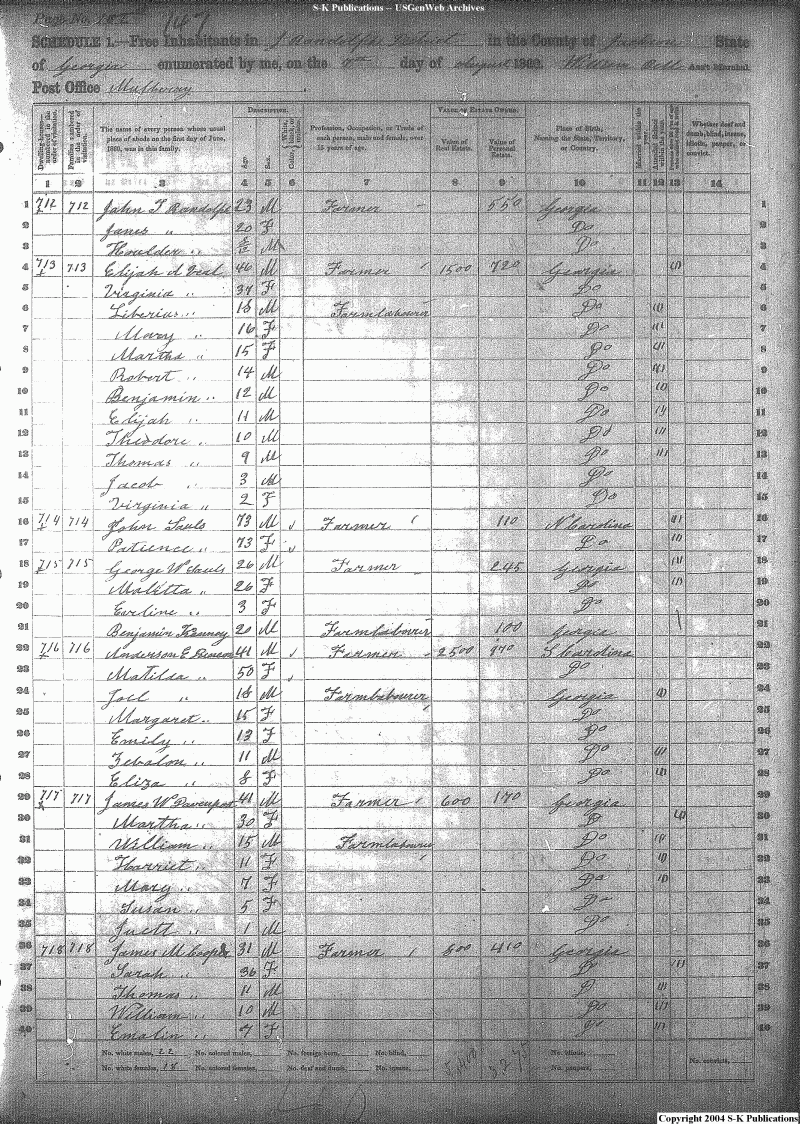 S-K Publications -- USGenWeb Archives
Page No. 147
SCHEDULE 1.—Free Inhabitants in J Randolphs District in the County of Jackson State
of Georgia enumerated by me, on the day of August 1860. William Bell Ass't Marshal
Post Office Mulberry
Dwelling-houses—numbered in the order of visitation.
Families numbered in the order of visitation.
The name of every person whose usual place of abode on the first day of June, 1860, was in this family.
DESCRIPTION.
Age.
Sex.
Color, White, black, or mulatto.
Profession, Occupation, or Trade of each person, male and female, over 15 years of age.
VALUE OF ESTATE OWNED.
Value of Real Estate.
Value of Personal Estate.
Place of Birth, Naming the State, Territory, or Country.
Married within the year.
Attended School within the year.
Whether deaf and dumb, blind, insane, idiotic, pauper, or convict.
1 2 3 4 5 6 7 8 9 10 11 12 13 14
1 712 712 John T Randolph 23 M Farmer 550 Georgia 1
2 Janes " 20 F Do 2
3 Houlder " M Do 3
4 713 713 Elijah Veal 40 M Farmer 1500 720 Georgia (1) 4
5 Virginia " 37 F Do 5
6 Liberius " 18 M Farmlabourer Do (1) 6
7 Mary " 16 F Do (1) 7
8 Martha " 15 F Do (1) 8
9 Robert " 14 M Do (1) 9
10 Benjamin " 12 M Do (1) 10
11 Elijah " 11 M Do (1) 11
12 Theodore " 10 M Do (1) 12
13 Thomas " 9 M Do (1) 13
14 Jacob " 3 M Do 14
15 Virginia " 2 F Do 15
16 714 714 John Sauls 73 M Farmer 110 N Carolina (1) 16
17 Patience " 73 F Do (1) 17
18 715 715 George W Sauls 26 M Farmer 245 Georgia (1) 18
19 Malitta " 26 F Do (1) 19
20 Earline " 3 F Do 20
21 Benjamin 20 M Farmlabourer 100 Georgia 21
22 716 716 Anderson E 41 M Farmer 2500 970 S Carolina 22
23 Matilda " 50 F Do 23
24 Joel " 18 M Farmlabourer Georgia (1) 24
25 Margaret " 15 F Do 25
26 Emily " 13 F Do 26
27 Zebalon " 11 M Do (1) 27
28 Eliza " 8 F Do (1) 28
29 717 717 James W Davenport 41 M Farmer 600 170 Georgia 29
30 Martha " 30 F D (1) 30
31 William " 15 M Farmlabourer Do (1) 31
32 Harriet " 11 F Do (1) 32
33 Mary " 7 F Do (1) 33
34 Susan " 5 F Do 34
35 Juett " 1 M Do 35
36 718 718 James M Cooper 31 M Farmer 800 410 Georgia 36
37 Sarah " 36 F D (1) 37
38 Thomas " 11 M D (1) 38
39 William " 10 M Do (1) 39
40 Emalin " 7 F Do (1) 40
No. white males, 22 No. colored males, No. foreign born, No. blind, No. idiotic, No. convicts,
No. white females, 18 No. colored females, No. deaf and dumb, No. insane, No. paupers,
Copyright 2004 S-K Publications